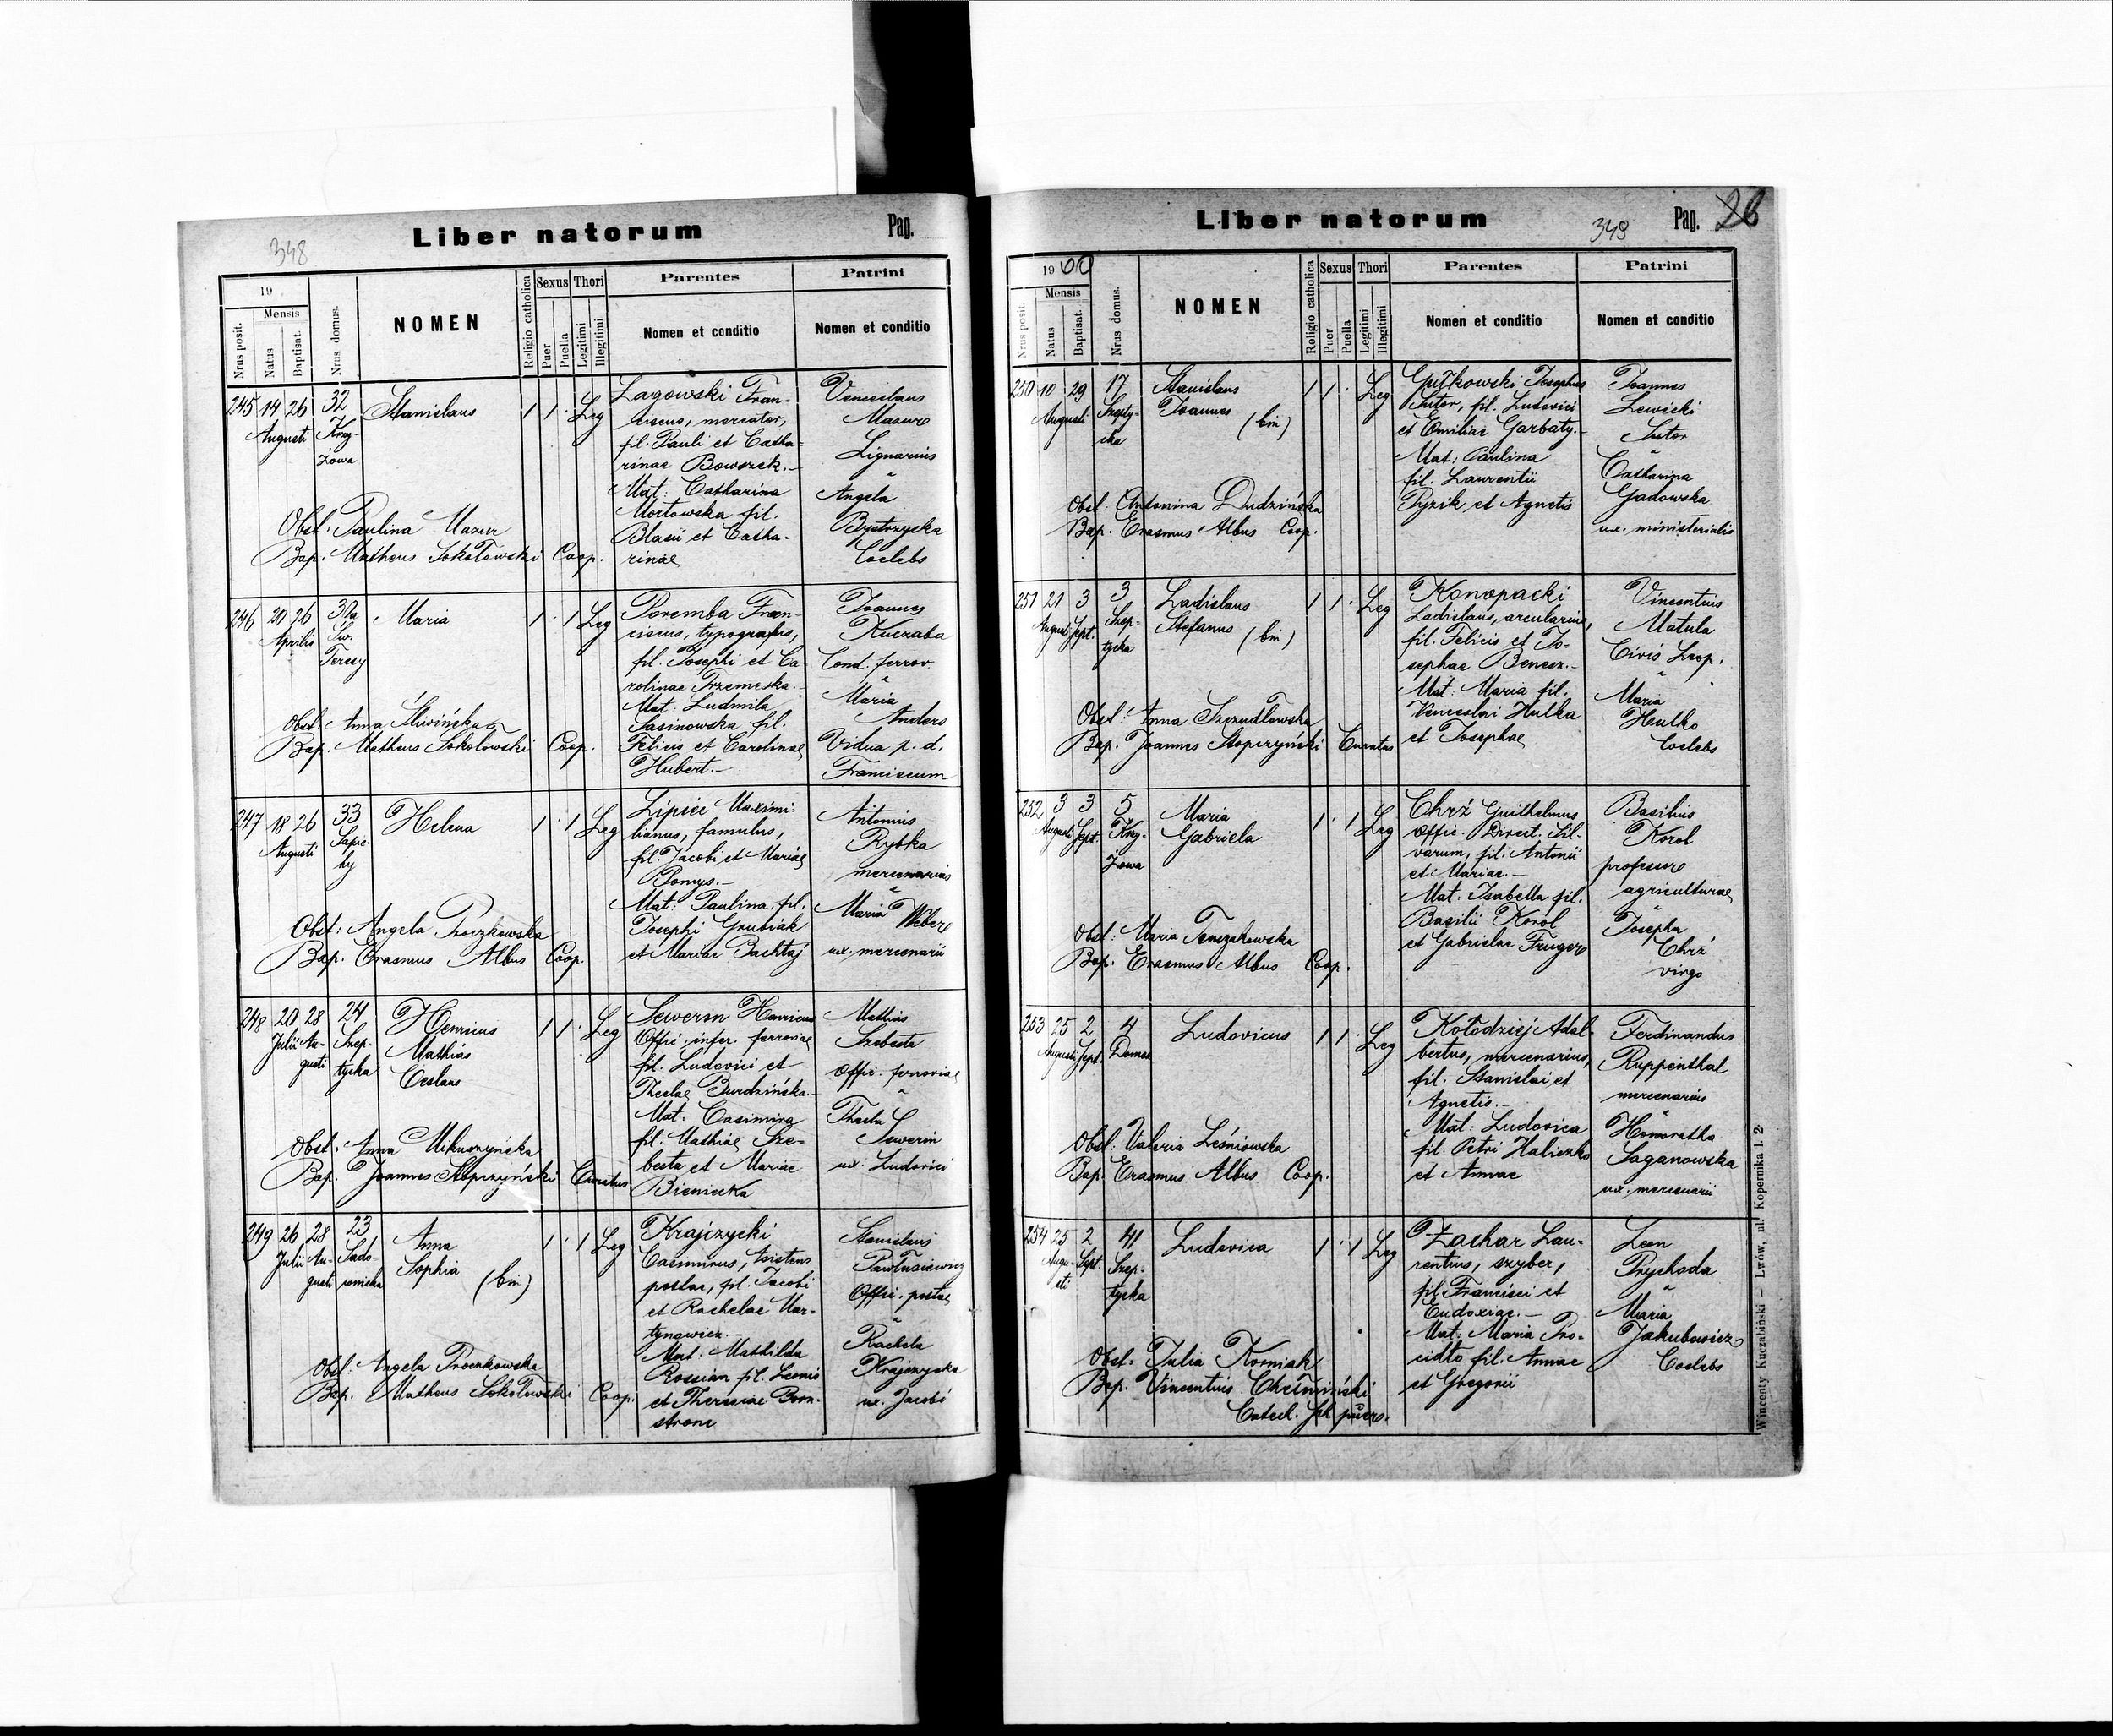 348
Liber natorum
Pag.
19
Mensis
Nrus posit.
Natus
Baptisat.
Nrus domus.
NOMEN
Religio catholica
Sexus
Puer
Puella
Thori
Legitimi
Illegitimi
Parentes
Nomen et conditio
Patrini
Nomen et conditio
245 14 26 32
Augusti
Krzy-
żowa
Stanislaus
1 1 Leg
Lagowski Fran-
ciscus, mercator,
fil. Pauli et Catha-
rinae
Mat: Catharina
fil.
Blasii et Catha-
rinae
Venceslaus
Mazur
Lignarius
Angela
Bystrzycka
Coelebs
Obst: Paulina Mazur
Bap. Matheus Sokołowski Coop.
246 20 26 30a
Aprilis
Św.
Teresy
Maria
1 1 Leg
Poremba Fran-
ciscus, typographus,
fil. Josephi et Ca-
rolinae Trzemeska.-
Mat. Ludmila
Sasinowska fil.
Felicis et Carolinae
Hubert.-
Joannes
Kuczaba
Cond. ferrov.
Maria
Anders
Vidua p. d.
Franciscum
Obst: Anna Śliwińska
Bap. Matheus Sokołowski Coop.
247 18 26 33
Augusti
Sapie-
hy
Helena
1 1 Leg
Lipiec Maximi-
lianus, famulus,
fil. Jacobi et Mariae
Mat: Paulina fil.
Josephi Grubiak
et Mariae Bachtaj
Antonius
Rybka
mercenarius
Maria Weber
ux. mercenarii
Obst: Angela Proczkowska
Bap. Erasmus Albus Coop.
248 20 28 24
Julii Au-
gusti
Szep-
tycka
Henricus
Mathias
Ceslaus
1 1 Leg
Sewerin Henricus
Offic. infer. ferroviae
fil. Ludovici et
Theclae Burdzińska.-
Mat: Casimira
fil. Mathiae Sze-
besta et Mariae
Bieniecka
Mathias
Szebesta
Offic. ferroviae
Thecla
Sewerin
ux. Ludovici
Obst: Anna Mikuszyńska
Bap. Joannes Stopczyński Curatus
249 26 28 23
Julii Au-
gusti
Sado-
wnicka
Anna
Sophia (bin)
1 1 Leg
Krajczycki
Casimirus, Asistens
postae, fil. Jacobi
et Rachelae Mar-
tynowicz.-
Mat. Mathilda
Rossian fil. Leonis
et Theresiae Born-
strom
Stanislaus
Pawłusiewicz
Offic. postae
Rachela
Krajczycka
ux. Jacobi
Obst: Angela Proczkowska
Bap. Matheus Sokołowski Coop.
Liber natorum
349
Pag. 26
1900
Mensis
Nrus posit.
Natus
Baptisat.
Nrus domus.
NOMEN
Religio catholica
Sexus
Puer
Puella
Thori
Legitimi
Illegitimi
Parentes
Nomen et conditio
Patrini
Nomen et conditio
250 10 29 17
Augusti
Szepty-
cka
Stanislaus
Joannes (bin)
1 1 Leg
Gutkowski Josephus
Sutor, fil. Ludovici
et Emiliae Garbaty.-
Mat: Paulina
fil. Laurentii
Pyzik et Agnetis
Joannes
Lewicki
Sutor
Catharina
Gadowska
ux. ministerialis
Obst: Antonina Dudzińska
Bap. Erasmus Albus Coop.
251 21 3 3
Augusti Sept.
Szep-
tycka
Ladislaus
Stefanus (bin)
1 1 Leg
Konopacki
Ladislaus, arcularius,
fil. Felicis et Jo-
sephae Benesz.-
Mat: Maria fil.
Venceslai Hulka
et Josephae
Vincentius
Matula
Civis Leop.
Maria
Hulko
Coelebs
Obst: Anna Szczudłowska
Bap. Joannes Stopczyński Curatus
252 3 3 5
Augusti Sept.
Krzy-
żowa
Maria
Gabriela
1 1 Leg
Chrz Guilhelmus
Offic. Direct. Sil-
varum, fil. Antonii
et Mariae.-
Mat. Isabella fil.
Basilii Korol
et Gabrielae Fruger
Basilius
Korol
professor
agriculturae
Josepha
Chrz
virgo
Obst: Maria Tenczakowska
Bap. Erasmus Albus Coop.
253 25 2 4
Augusti Sept.
Domsa
Ludovicus
1 1 Leg
Kołodziej Adal-
bertus, mercenarius,
fil. Stanislai et
Agnetis.-
Mat: Ludovica
fil. Petri Haliczko
et Annae
Ferdinandus
Ruppenthal
mercenarius
Honoratha
Saganowska
ux. mercenarii
Obst: Valeria Leśniowska
Bap. Erasmus Albus Coop.
254 25 2 41
Augu-
sti
Sept.
Szep-
tycka
Ludovica
1 1 Leg
Zachar Lau-
rentius, szyber,
fil. Francisci et
Eudoxiae.-
Mat: Maria Pro-
cidło fil. Annae
et Gregorii
Leon
Prychoda
Maria
Jakubowicz
Coelebs
Obst: Julia Korniak
Bap. Vincentius Chełmiński
Catech.
Wincenty Kuczabiński – Lwów, ul. Kopernika l. 2